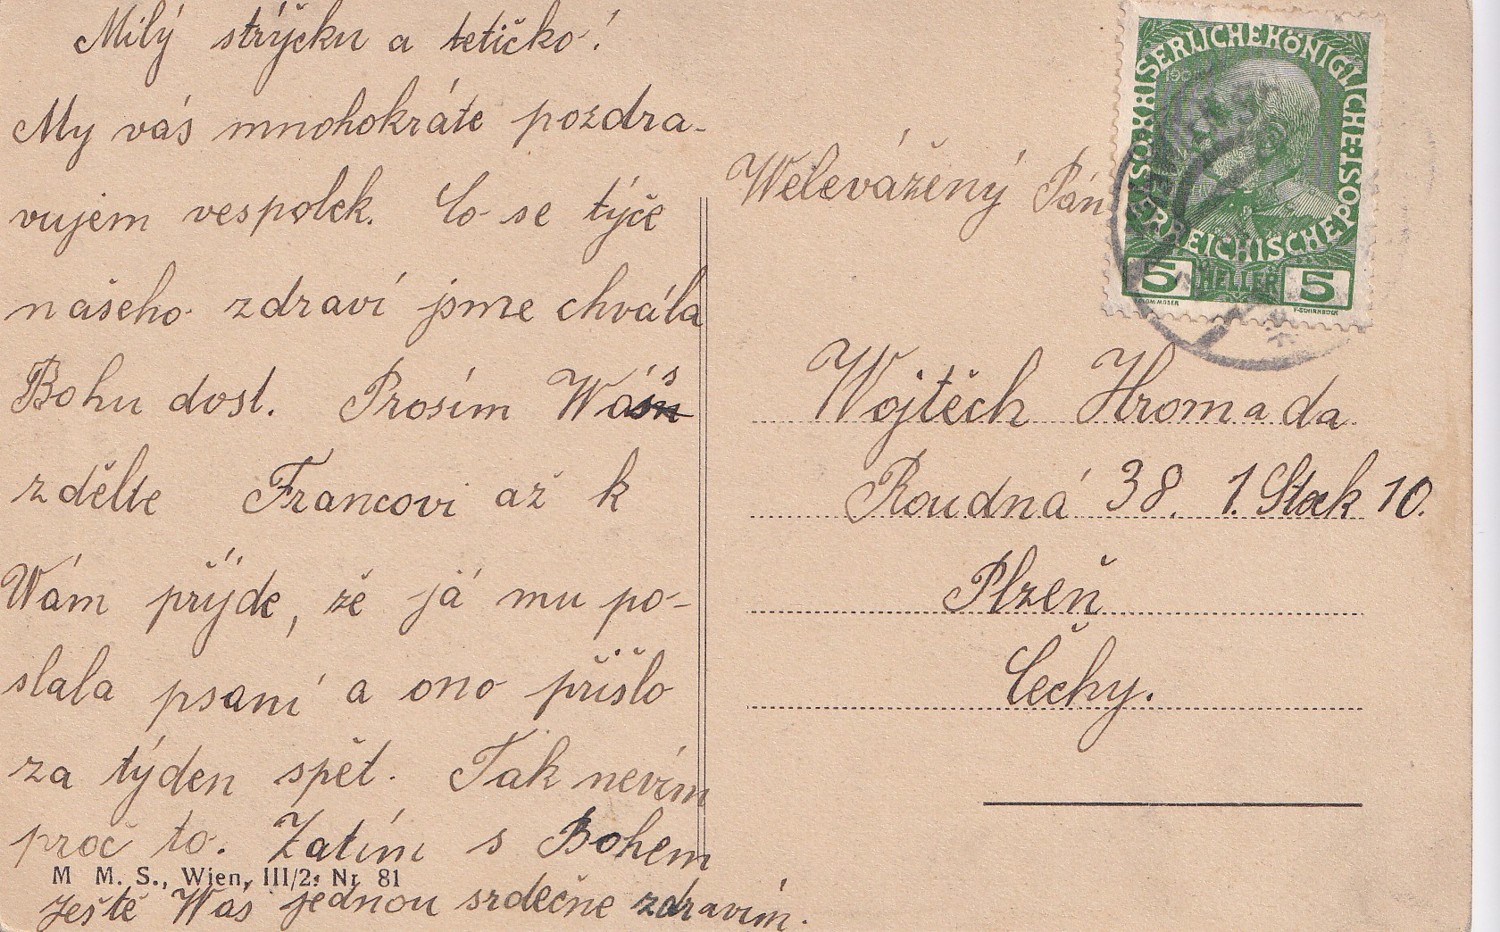 Milý strýčku a tetičko!
My vás mnohokráte pozdra-
vujem vespolek. Co se týče
našeho zdraví jsme chvála
Bohu dost. Prosím Wás
zdělte Francovi až k
Wám příjde, že já mu po-
slala psaní a ono přišlo
za týden spět. Tak nevím
proč to. Zatím s Bohem
M. M. S., Wien, III/2. Nr. 81
Ještě Wás jednou srdečně zdravím.
Welevážený Pán
Wojtěch Hromada
Roudná 38. 1. Stock 10.
Plzeň
Čechy.
KAISERLICHE KÖNIGLICHE
ÖSTERREICHISCHE POST
1908
5 HELLER 5